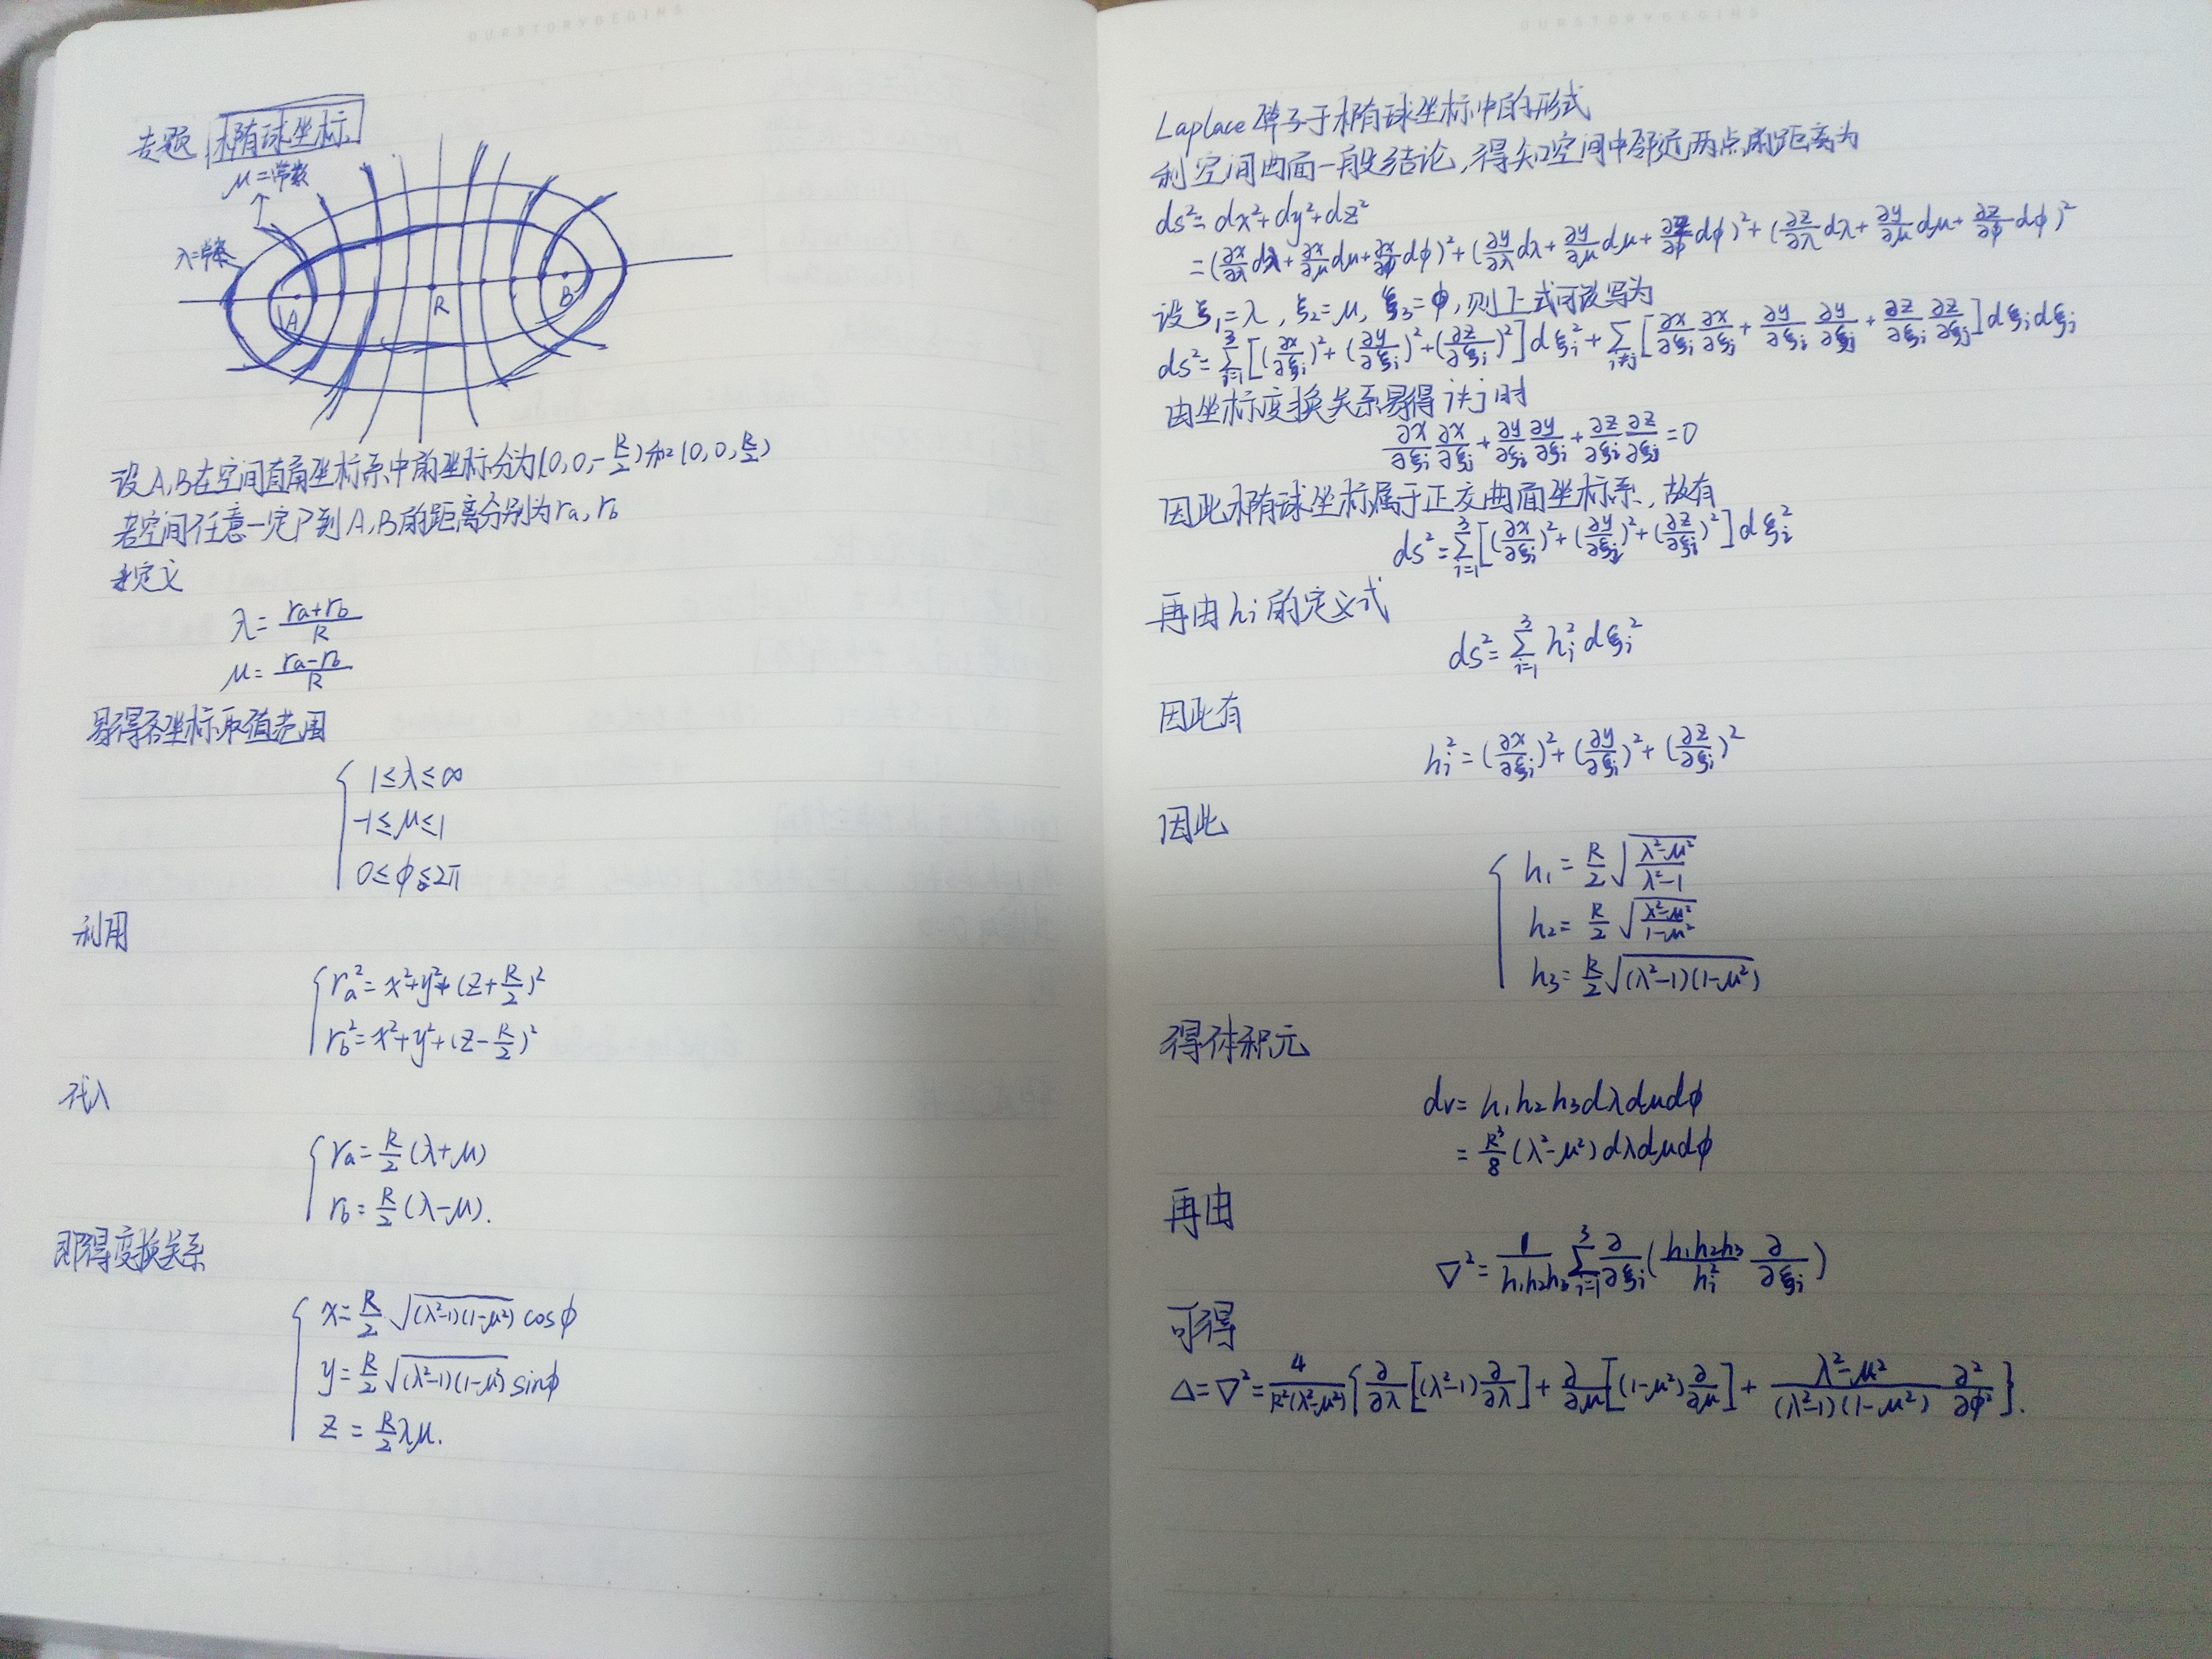 OURSTORYBEGINS
专题 椭球坐标
μ=常数
λ=常数
A R B
设A,B在空间直角坐标系中的坐标分为(0,0,-R/2)和(0,0,R/2)
若空间任意一定P到A,B的距离分别为ra,rb
定义
λ=(ra+rb)/R
μ=(ra-rb)/R
易得各坐标取值范围
1≤λ≤∞
-1≤μ≤1
0≤ϕ≤2π
利用
ra²=x²+y²+(z+R/2)²
rb²=x²+y²+(z-R/2)²
代入
ra=R/2(λ+μ)
rb=R/2(λ-μ).
即得变换关系
x=R/2√((λ²-1)(1-μ²)) cosϕ
y=R/2√((λ²-1)(1-μ²)) sinϕ
z=R/2λμ.
OURSTORYBEGINS
Laplace算子于椭球坐标中的形式
利空间曲面一般结论,得知空间中邻近两点的距离为
ds²=dx²+dy²+dz²
=(∂x/∂λ dλ+∂x/∂μ dμ+∂x/∂ϕ dϕ)²+(∂y/∂λ dλ+∂y/∂μ dμ+∂z/∂ϕ dϕ)²+(∂z/∂λ dλ+∂y/∂μ dμ+∂z/∂ϕ dϕ)²
设ξ₁=λ,ξ₂=μ,ξ₃=ϕ,则上式可改写为
ds²=∑_{i=1}^{3}[(∂x/∂ξi)²+(∂y/∂ξi)²+(∂z/∂ξi)²]dξi²+∑_{i≠j}[∂x/∂ξi ∂x/∂ξj+∂y/∂ξi ∂y/∂ξj+∂z/∂ξi ∂z/∂ξj]dξi dξj
由坐标变换关系易得i≠j时
∂x/∂ξi ∂x/∂ξj+∂y/∂ξi ∂y/∂ξj+∂z/∂ξi ∂z/∂ξj=0
因此椭球坐标属于正交曲面坐标系,故有
ds²=∑_{i=1}^{3}[(∂x/∂ξi)²+(∂y/∂ξi)²+(∂z/∂ξi)²]dξi²
再由hi的定义式
ds²=∑_{i=1}^{3} hi² dξi²
因此有
hi²=(∂x/∂ξi)²+(∂y/∂ξi)²+(∂z/∂ξi)²
因此
h₁=R/2√((λ²-μ²)/(λ²-1))
h₂=R/2√((λ²-μ²)/(1-μ²))
h₃=R/2√((λ²-1)(1-μ²))
得体积元
dv=h₁h₂h₃dλdμdϕ
=R³/8(λ²-μ²)dλdμdϕ
再由
∇²=1/(h₁h₂h₃)∑_{i=1}^{3}∂/∂ξi(h₁h₂h₃/hi² ∂/∂ξi)
可得
Δ=∇²=4/(R²(λ²-μ²)){∂/∂λ[(λ²-1)∂/∂λ]+∂/∂μ[(1-μ²)∂/∂μ]+(λ²-μ²)/((λ²-1)(1-μ²)) ∂²/∂ϕ²}.